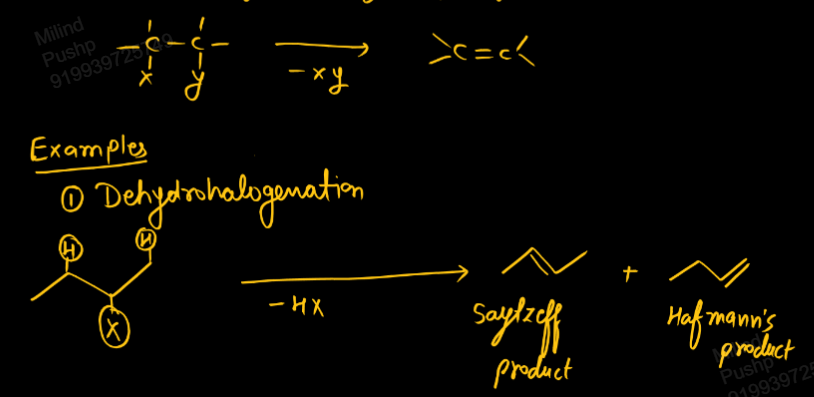 Milind
Pushp
-C-C-
x y
-xy
>C=C<
Examples
① Dehydrohalogenation
H H
X
-HX
+
Saytzeff
product
Hafmann's
product
Milind
Pushp